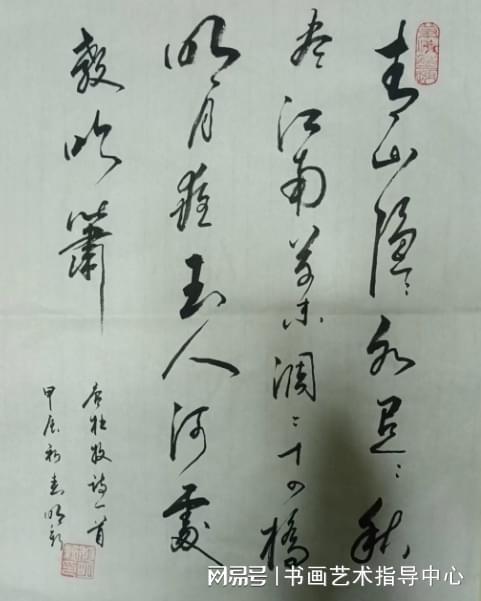 青山隐々水迢々秋
尽江南草未凋二十四橋
明月夜玉人何處
教吹簫
唐杜牧诗一首
甲辰初春明
网易号 | 书画艺术指导中心